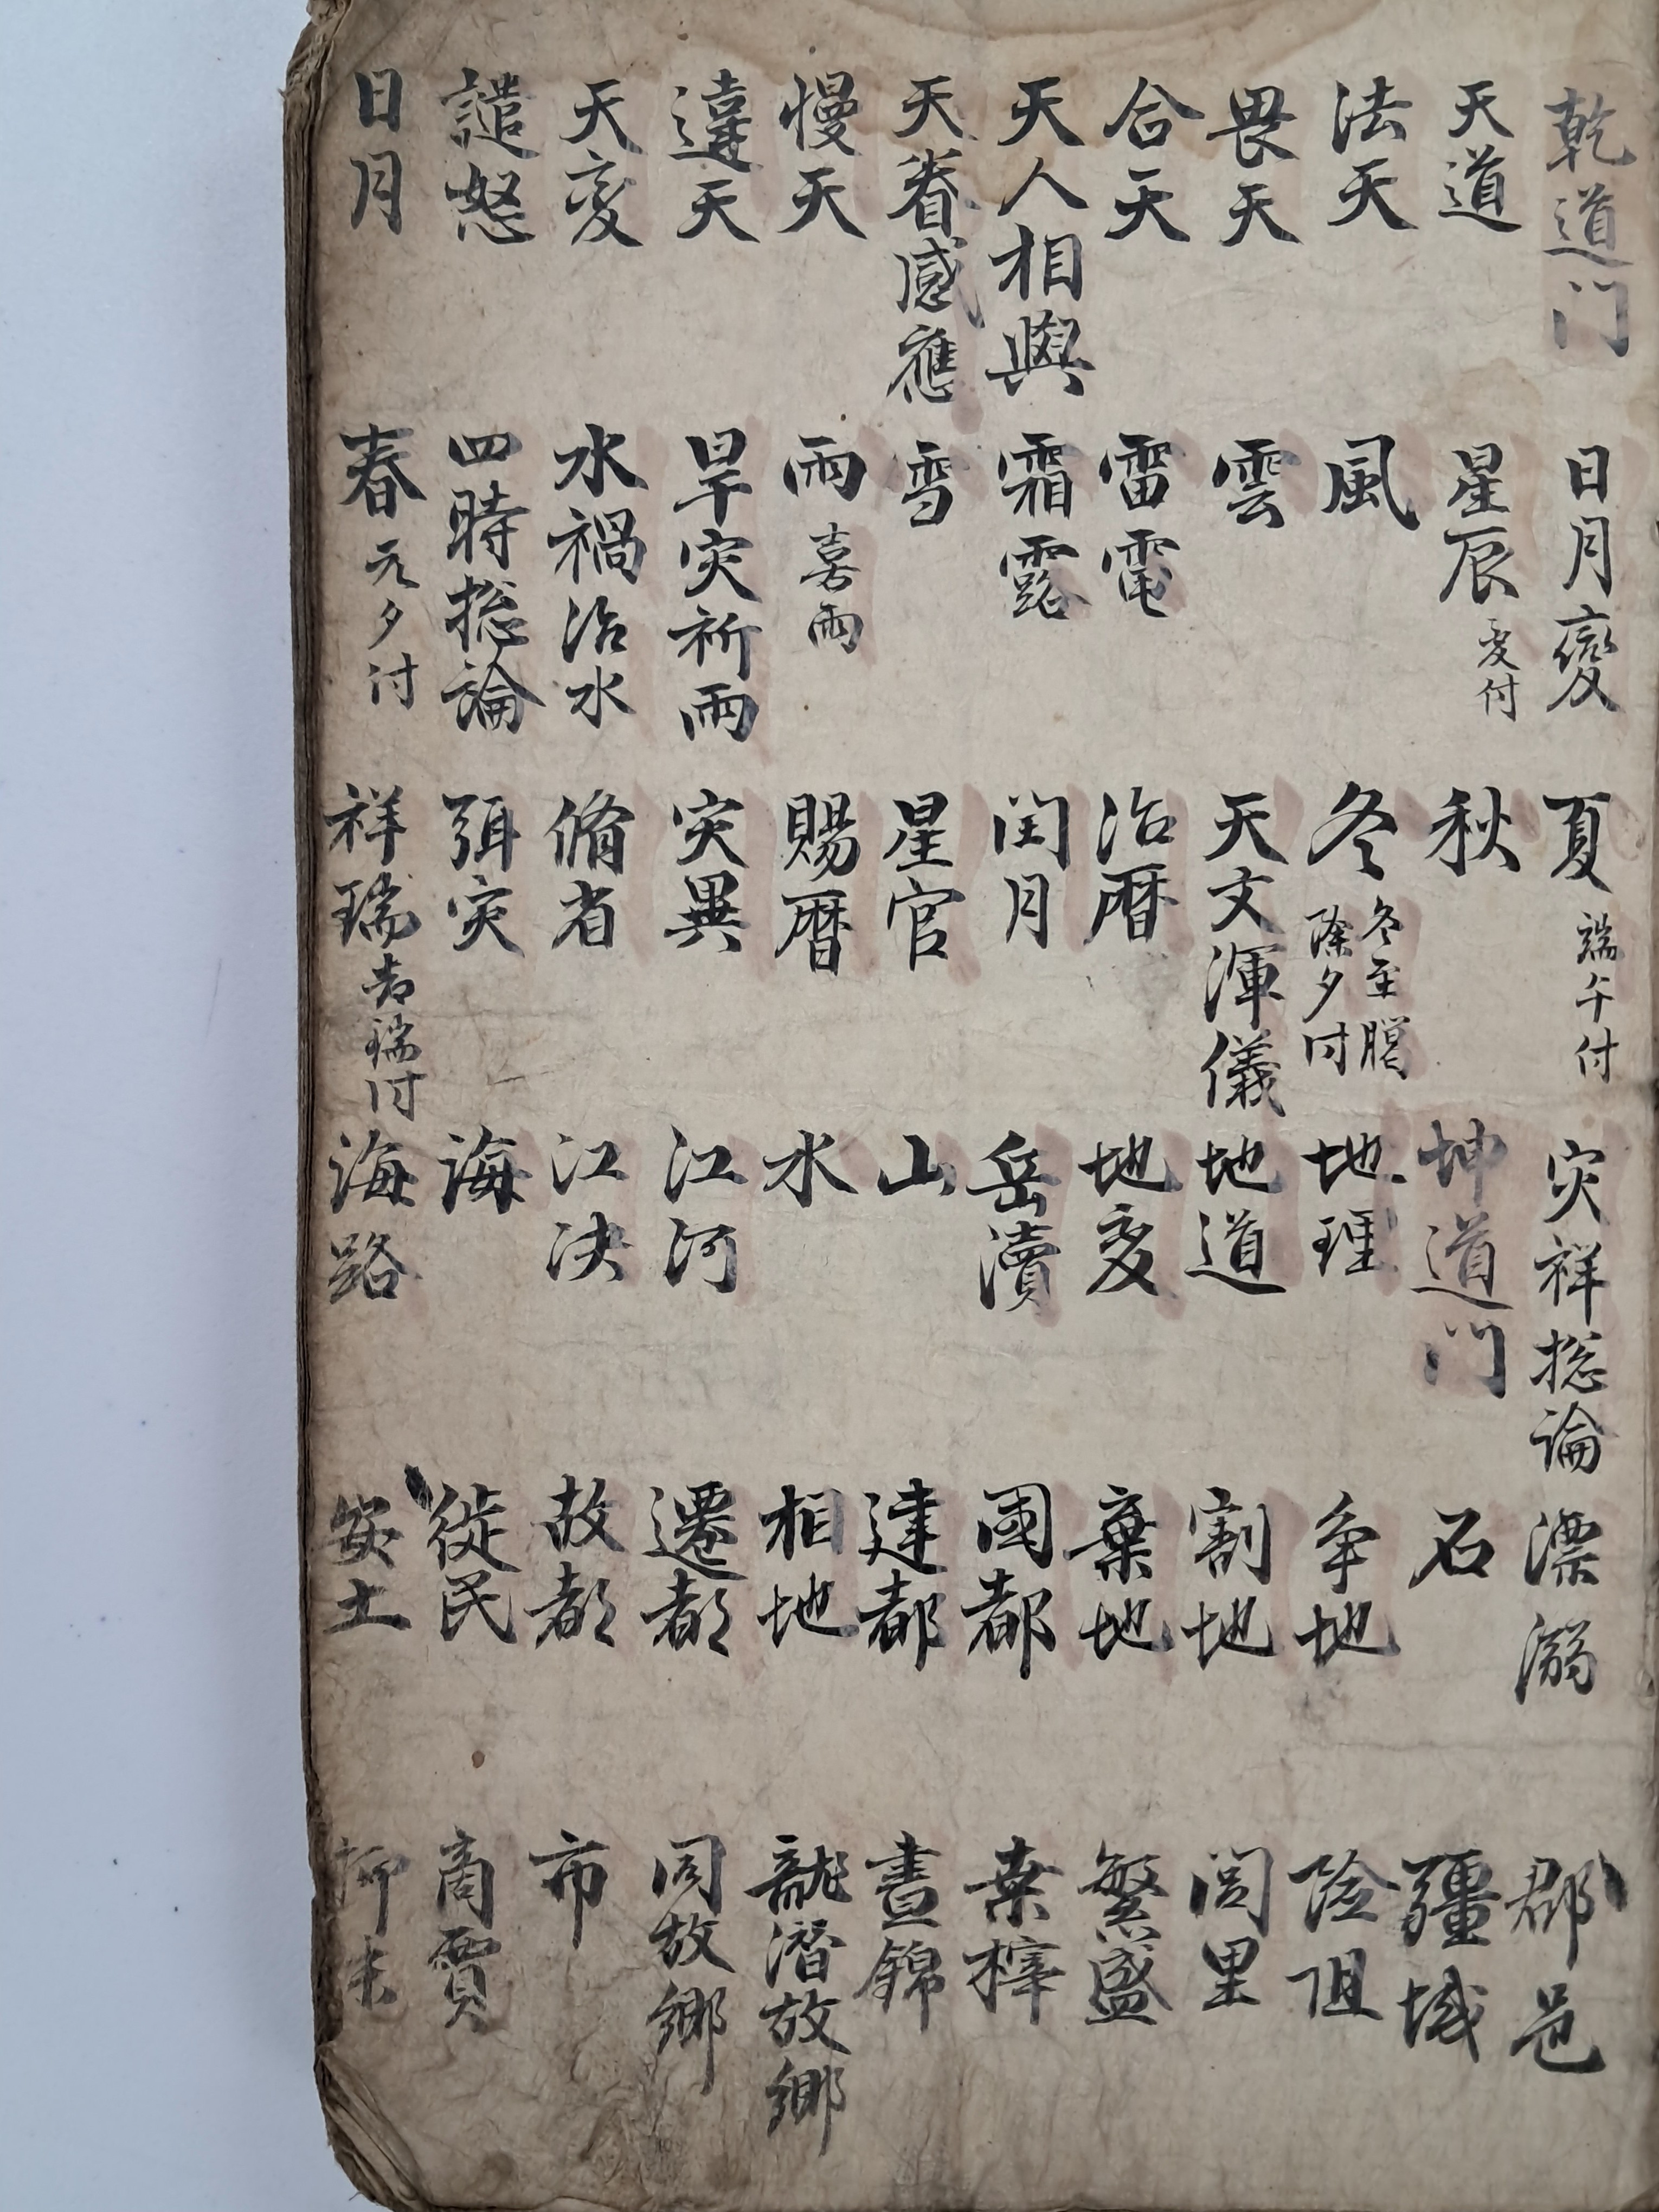 乾道门
天道
法天
畏天
合天
天人相與
天眷感應
慢天
違天
天変
譴怒
日月
日月變
星辰 変付
風
雲
雷電
霜露
雪
雨 喜雨
旱灾祈雨
水禍治水
四時摠論
春 元夕付
夏 端午付
秋
冬 冬至臘除夕付
天文渾儀
治曆
闰月
星官
賜曆
灾異
脩省
弭灾
祥瑞 告瑞付
灾祥摠論
坤道门
地理
地道
地変
岳瀆
山
水
江河
江决
海
海路
漂溺
石
争地
割地
棄地
國都
建都
相地
遷都
故都
徙民
安土
郡邑
疆域
险阻
闾里
繁盛
桑梓
晝錦
龍潜故鄉
同故鄉
市
商賈
抑末